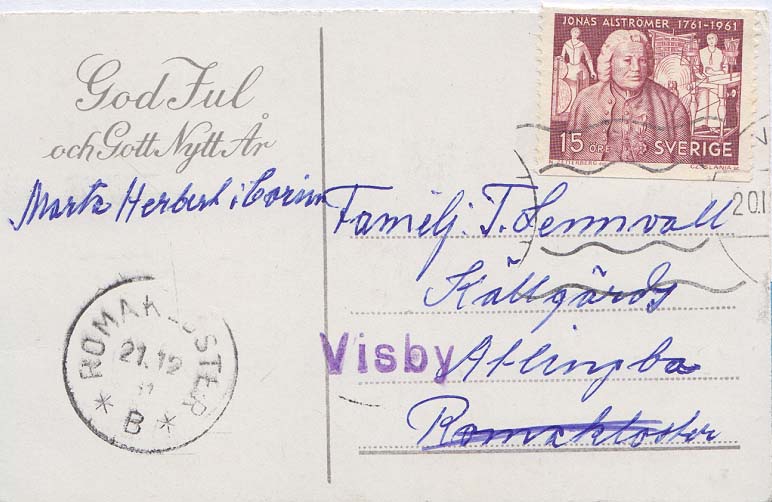 God Jul
och Gott Nytt År
Marta Herbert i Corinn
JONAS ALSTRÖMER 1761-1961
15 ÖRE SVERIGE
CZ. SLANIA SC
20.1
Familj. T. Lennvall
Källgårds
Visby Atlingbo
Romakloster
ROMAKLOSTER
21.12
* B *